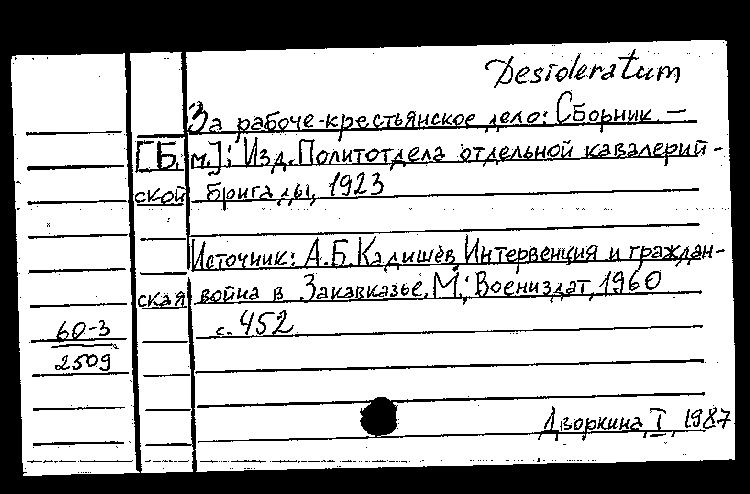 Desideratum
За рабоче-крестьянское дело: Сборник. –
[Б. м.]: Изд. Политотдела отдельной кавалерий-
ской бригады, 1923
Источник: А.Б. Кадишев Интервенция и граждан-
ская война в Закавказье. М.: Воениздат, 1960
с. 452
60-3
2509
Дворкина, I, 1987